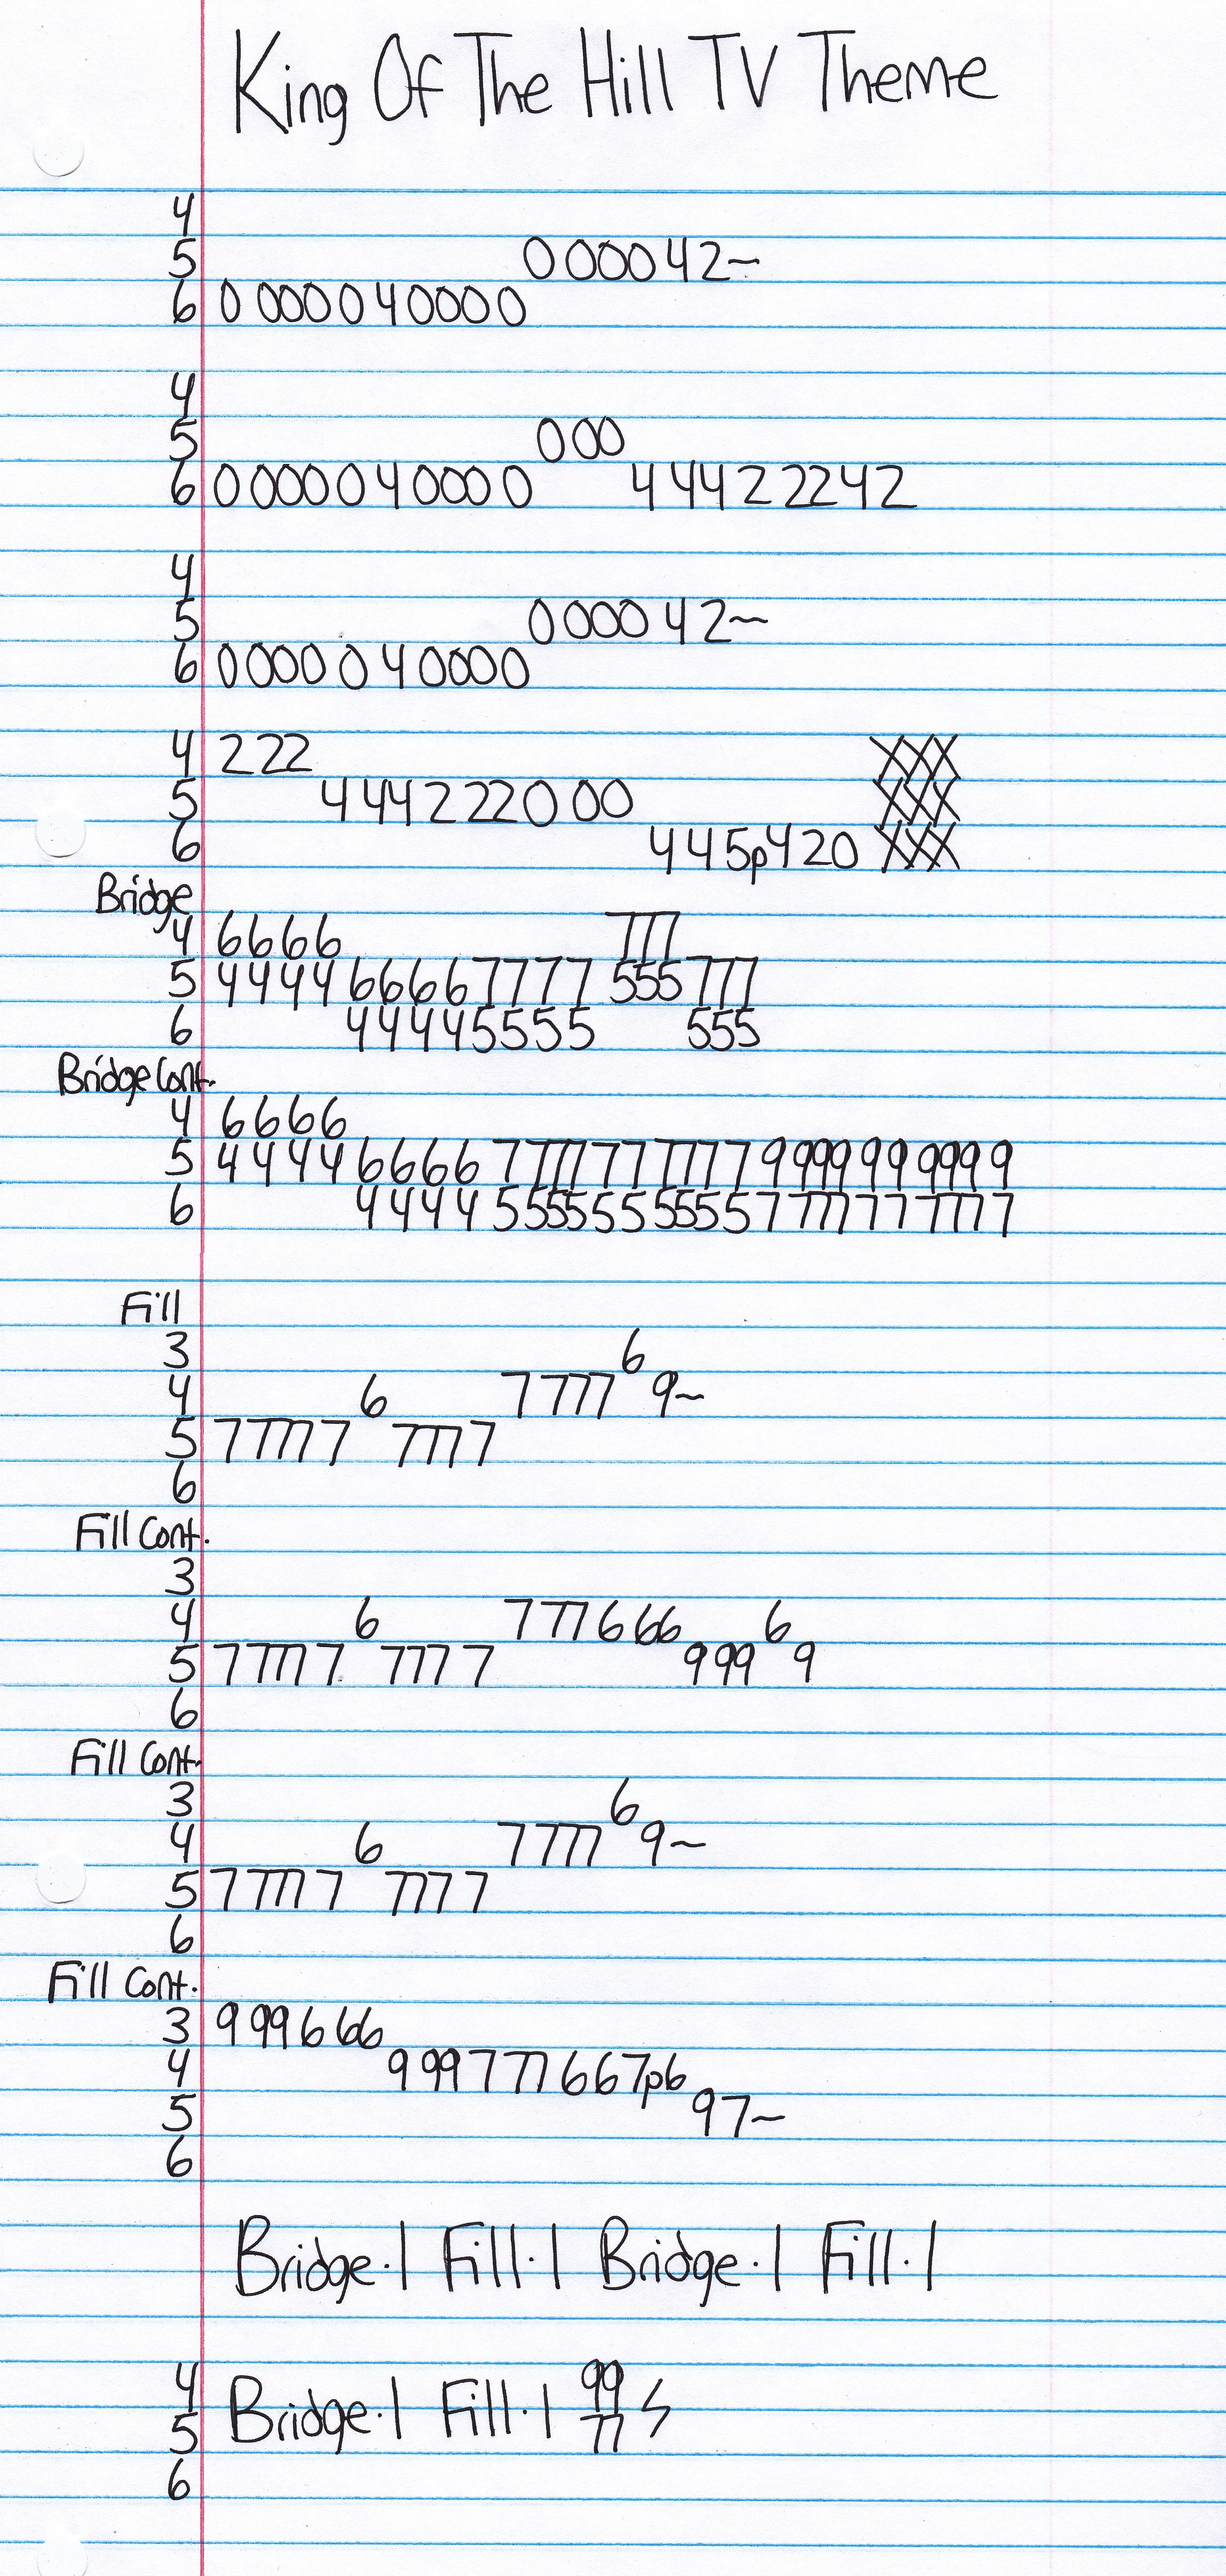 King Of The Hill TV Theme
4
5 0 000 0 4 2~
6 0 000 0 4 0 0 0 0
4
5 0 0 0
6 0 0 0 0 0 4 0 0 0 0 4 4 4 2 2 2 4 2
4
5 0 0 0 0 4 2~
6 0 0 0 0 0 4 0 0 0 0
4 2 2 2 XXX
5 4 4 4 2 2 2 0 0 0 XXX
6 4 4 5p4 2 0 XXX
Bridge
4 6 6 6 6 7 7 7
5 4 4 4 4 6 6 6 6 7 7 7 7 5 5 5 7 7 7
6 4 4 4 4 5 5 5 5 5 5 5
Bridge Cont.
4 6 6 6 6
5 4 4 4 4 6 6 6 6 7 7 7 7 7 7 7 7 7 7 9 9 9 9 9 9 9 9 9 9
6 4 4 4 4 5 5 5 5 5 5 5 5 5 5 7 7 7 7 7 7 7 7 7 7
Fill
3 6
4 6 7 7 7 7 9~
5 7 7 7 7 7 7 7 7 7
6
Fill Cont.
3
4 6 7 7 7 6 6 6 6
5 7 7 7 7 7 7 7 7 7 9 9 9 9
6
Fill Cont.
3 6
4 6 7 7 7 7 9~
5 7 7 7 7 7 7 7 7 7
6
Fill Cont.
3 9 9 9 6 6 6
4 9 9 9 7 7 7 6 6 7p6
5 9 7~
6
Bridge.| Fill.| Bridge.| Fill.|
4 99
5 Bridge.| Fill.| 77
6